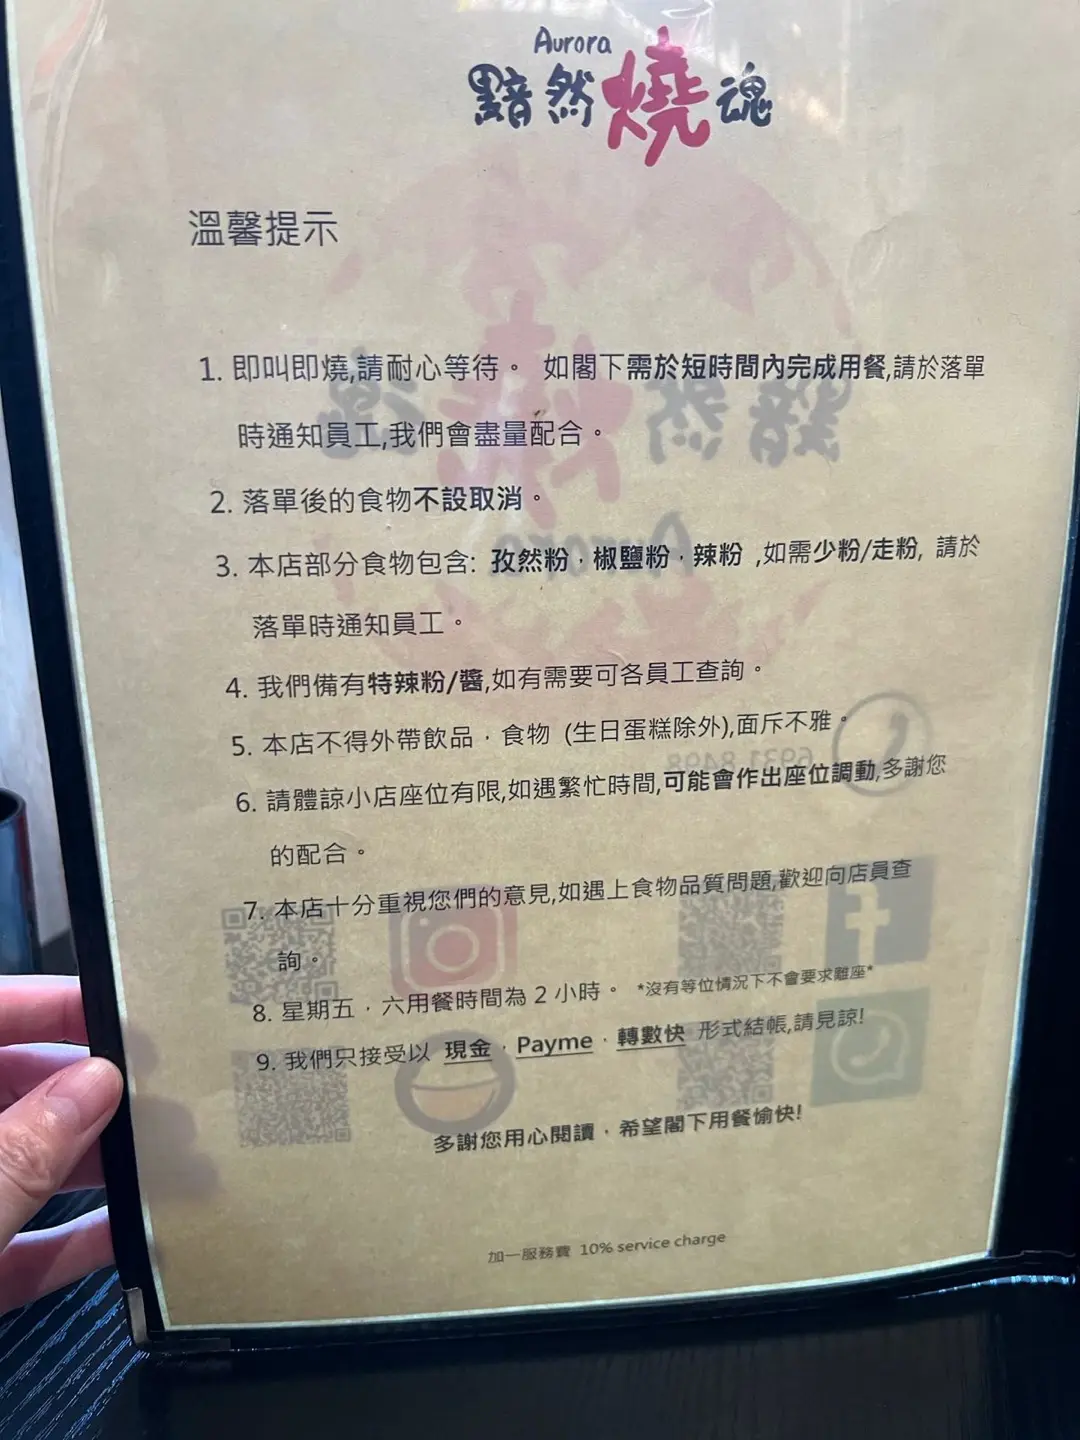 Aurora
黯然燒魂
溫馨提示
1. 即叫即燒,請耐心等待。 如閣下需於短時間內完成用餐,請於落單
時通知員工,我們會盡量配合。
2. 落單後的食物不設取消。
3. 本店部分食物包含: 孜然粉，椒鹽粉，辣粉 ,如需少粉/走粉, 請於
落單時通知員工。
4. 我們備有特辣粉/醬,如有需要可各員工查詢。
5. 本店不得外帶飲品，食物 (生日蛋糕除外),面斥不雅。
6. 請體諒小店座位有限,如遇繁忙時間,可能會作出座位調動,多謝您
的配合。
7. 本店十分重視您們的意見,如遇上食物品質問題,歡迎向店員查
詢。
8. 星期五，六用餐時間為 2 小時。 *沒有等位情況下不會要求離座*
9. 我們只接受以 現金，Payme，轉數快 形式結帳,請見諒!
多謝您用心閱讀，希望閣下用餐愉快!
加一服務費 10% service charge
6931 8498